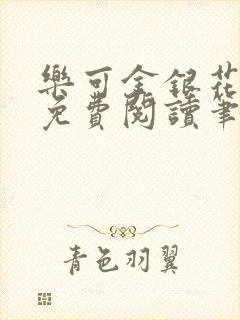 樂可金銀花
免費閱讀筆
青色羽翼